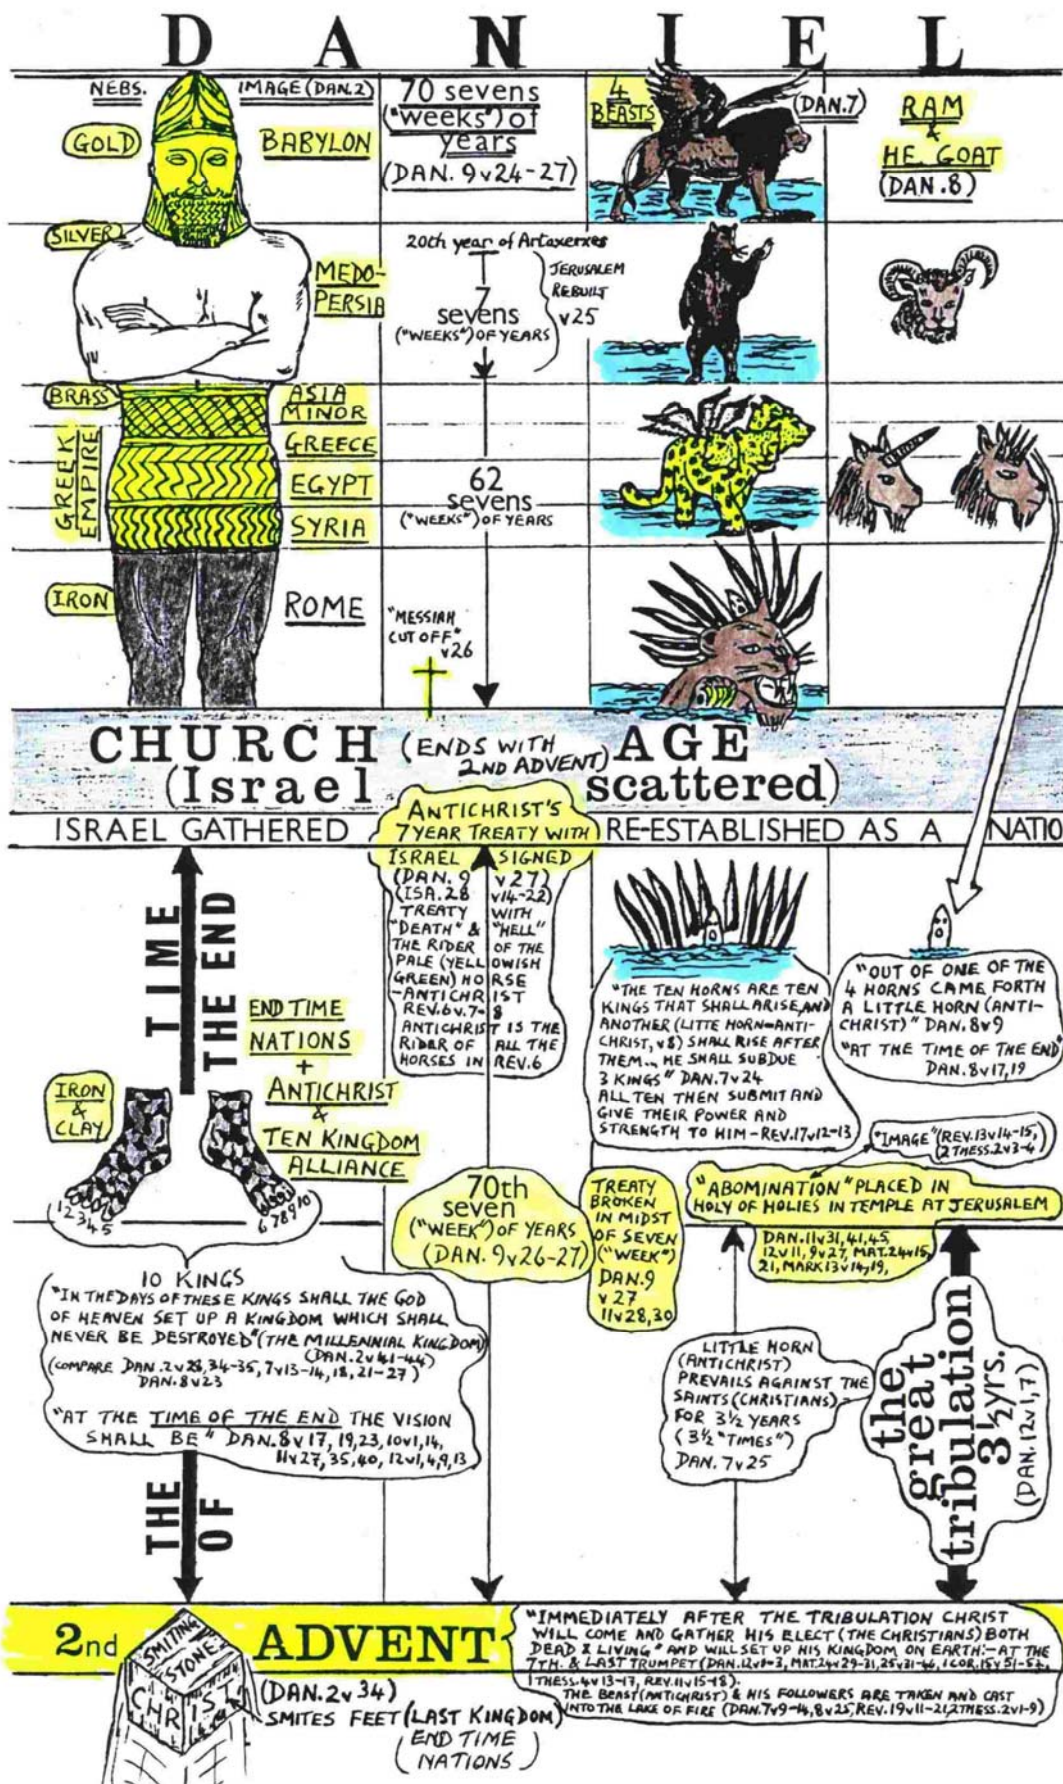 DANIEL
NEBS.
IMAGE (DAN.2)
GOLD
BABYLON
70 sevens
("weeks") of
years
(DAN. 9v24-27)
4
BEASTS
(DAN.7)
RAM
&
HE. GOAT
(DAN.8)
SILVER
MEDO-
PERSIA
20th year of Artaxerxes
7
sevens
("WEEKS") OF YEARS
JERUSALEM
REBUILT
v25
BRASS
GREEK
EMPIRE
ASIA
MINOR
GREECE
EGYPT
SYRIA
62
sevens
("WEEKS") OF YEARS
IRON
ROME
"MESSIAH
CUT OFF"
v26
CHURCH (ENDS WITH
2ND ADVENT) AGE
(Israel scattered)
ISRAEL GATHERED
RE-ESTABLISHED AS A NATIO
ANTICHRIST'S
7 YEAR TREATY WITH
ISRAEL SIGNED
(DAN. 9 v27)
(ISA.28 v14-22)
TREATY WITH
"DEATH" & "HELL"
THE RIDER OF THE
PALE (YELLOWISH
GREEN) HORSE
-ANTICHRIST
REV.6v.7-8
ANTICHRIST IS THE
RIDER OF ALL THE
HORSES IN REV.6
THE TIME
OF THE END
END TIME
NATIONS
+
ANTICHRIST
&
TEN KINGDOM
ALLIANCE
IRON
&
CLAY
1 2 3 4 5
6 7 8 9 10
"THE TEN HORNS ARE TEN
KINGS THAT SHALL ARISE, AND
ANOTHER (LITTE HORN=ANTI-
CHRIST, v8) SHALL RISE AFTER
THEM... HE SHALL SUBDUE
3 KINGS" DAN.7v24
ALL TEN THEN SUBMIT AND
GIVE THEIR POWER AND
STRENGTH TO HIM-REV.17v12-13
"OUT OF ONE OF THE
4 HORNS CAME FORTH
A LITTLE HORN (ANTI-
CHRIST)" DAN.8v9
"AT THE TIME OF THE END"
DAN.8v17,19
"IMAGE" (REV.13v14-15,
(2 THESS.2v3-4)
"ABOMINATION" PLACED IN
HOLY OF HOLIES IN TEMPLE AT JERUSALEM
DAN.11v31,41,45,
12v11, 9v27, MAT.24v15,
21, MARK13v14,19,
70th
seven
("WEEK") OF YEARS
(DAN. 9v26-27)
TREATY
BROKEN
IN MIDST
OF SEVEN
("WEEK")
DAN.9
v27
11v28,30
10 KINGS
"IN THE DAYS OF THESE KINGS SHALL THE GOD
OF HEAVEN SET UP A KINGDOM WHICH SHALL
NEVER BE DESTROYED" (THE MILLENNIAL KINGDOM)
(DAN.2v41-44)
(COMPARE DAN.2v28,34-35, 7v13-14, 18, 21-27)
DAN.8v23
"AT THE TIME OF THE END THE VISION
SHALL BE" DAN.8v17, 19,23, 10v1,14,
11v27, 35, 40, 12v1,4,9,13
LITTLE HORN
(ANTICHRIST)
PREVAILS AGAINST THE
SAINTS (CHRISTIANS)-
FOR 3½ YEARS
(3½ "TIMES")
DAN. 7v25
the
great
tribulation
3½yrs.
(DAN.12v1,7)
2nd ADVENT
"IMMEDIATELY AFTER THE TRIBULATION CHRIST
WILL COME AND GATHER HIS ELECT (THE CHRISTIANS) BOTH
DEAD & LIVING" AND WILL SET UP HIS KINGDOM ON EARTH:-AT THE
7TH. & LAST TRUMPET (DAN.12v1-3, MAT.24v29-31, 25v31-46, 1 COR.15v51-52,
1 THESS.4v13-17, REV.11v15-18).
THE BEAST (ANTICHRIST) & HIS FOLLOWERS ARE TAKEN AND CAST
INTO THE LAKE OF FIRE (DAN.7v9-14, 8v25, REV.19v11-21, 2THESS.2v1-9)
SMITING
STONE
CHRIST
(DAN.2v34)
SMITES FEET (LAST KINGDOM)
(END TIME
NATIONS)